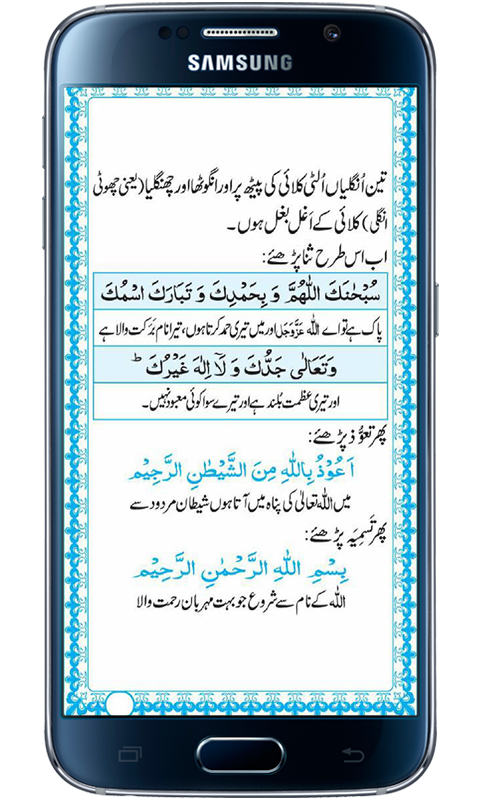 SAMSUNG
تین اُنگلیاں اُلٹی کلائی کی پیٹھ پر اور انگوٹھا اور چھنگلیا (یعنی چھوٹی
انگلی) کلائی کے اَغل بغل ہوں۔
اب اس طرح ثنا پڑھئے:
سُبْحٰنَكَ اللّٰهُمَّ وَ بِحَمْدِكَ وَ تَبَارَكَ اسْمُكَ
پاک ہے تو اے اللہ عَزَّوَجَلَّ اور میں تیری حمد کرتا ہوں، تیرا نام بَرَکت والا ہے
وَتَعَالٰی جَدُّكَ وَ لَآ اِلٰهَ غَيْرُكَ ؕ
اور تیری عظمت بُلند ہے اور تیرے سوا کوئی معبود نہیں۔
پھر تعوُّذ پڑھئے:
اَعُوْذُ بِاللّٰهِ مِنَ الشَّيْطٰنِ الرَّجِيْمِ
میں اللہ تعالیٰ کی پناہ میں آتا ہوں شیطان مردود سے
پھر تَسمِیَہ پڑھئے:
بِسْمِ اللّٰهِ الرَّحْمٰنِ الرَّحِيْمِ
اللہ کے نام سے شروع جو بہت مہربان رحمت والا